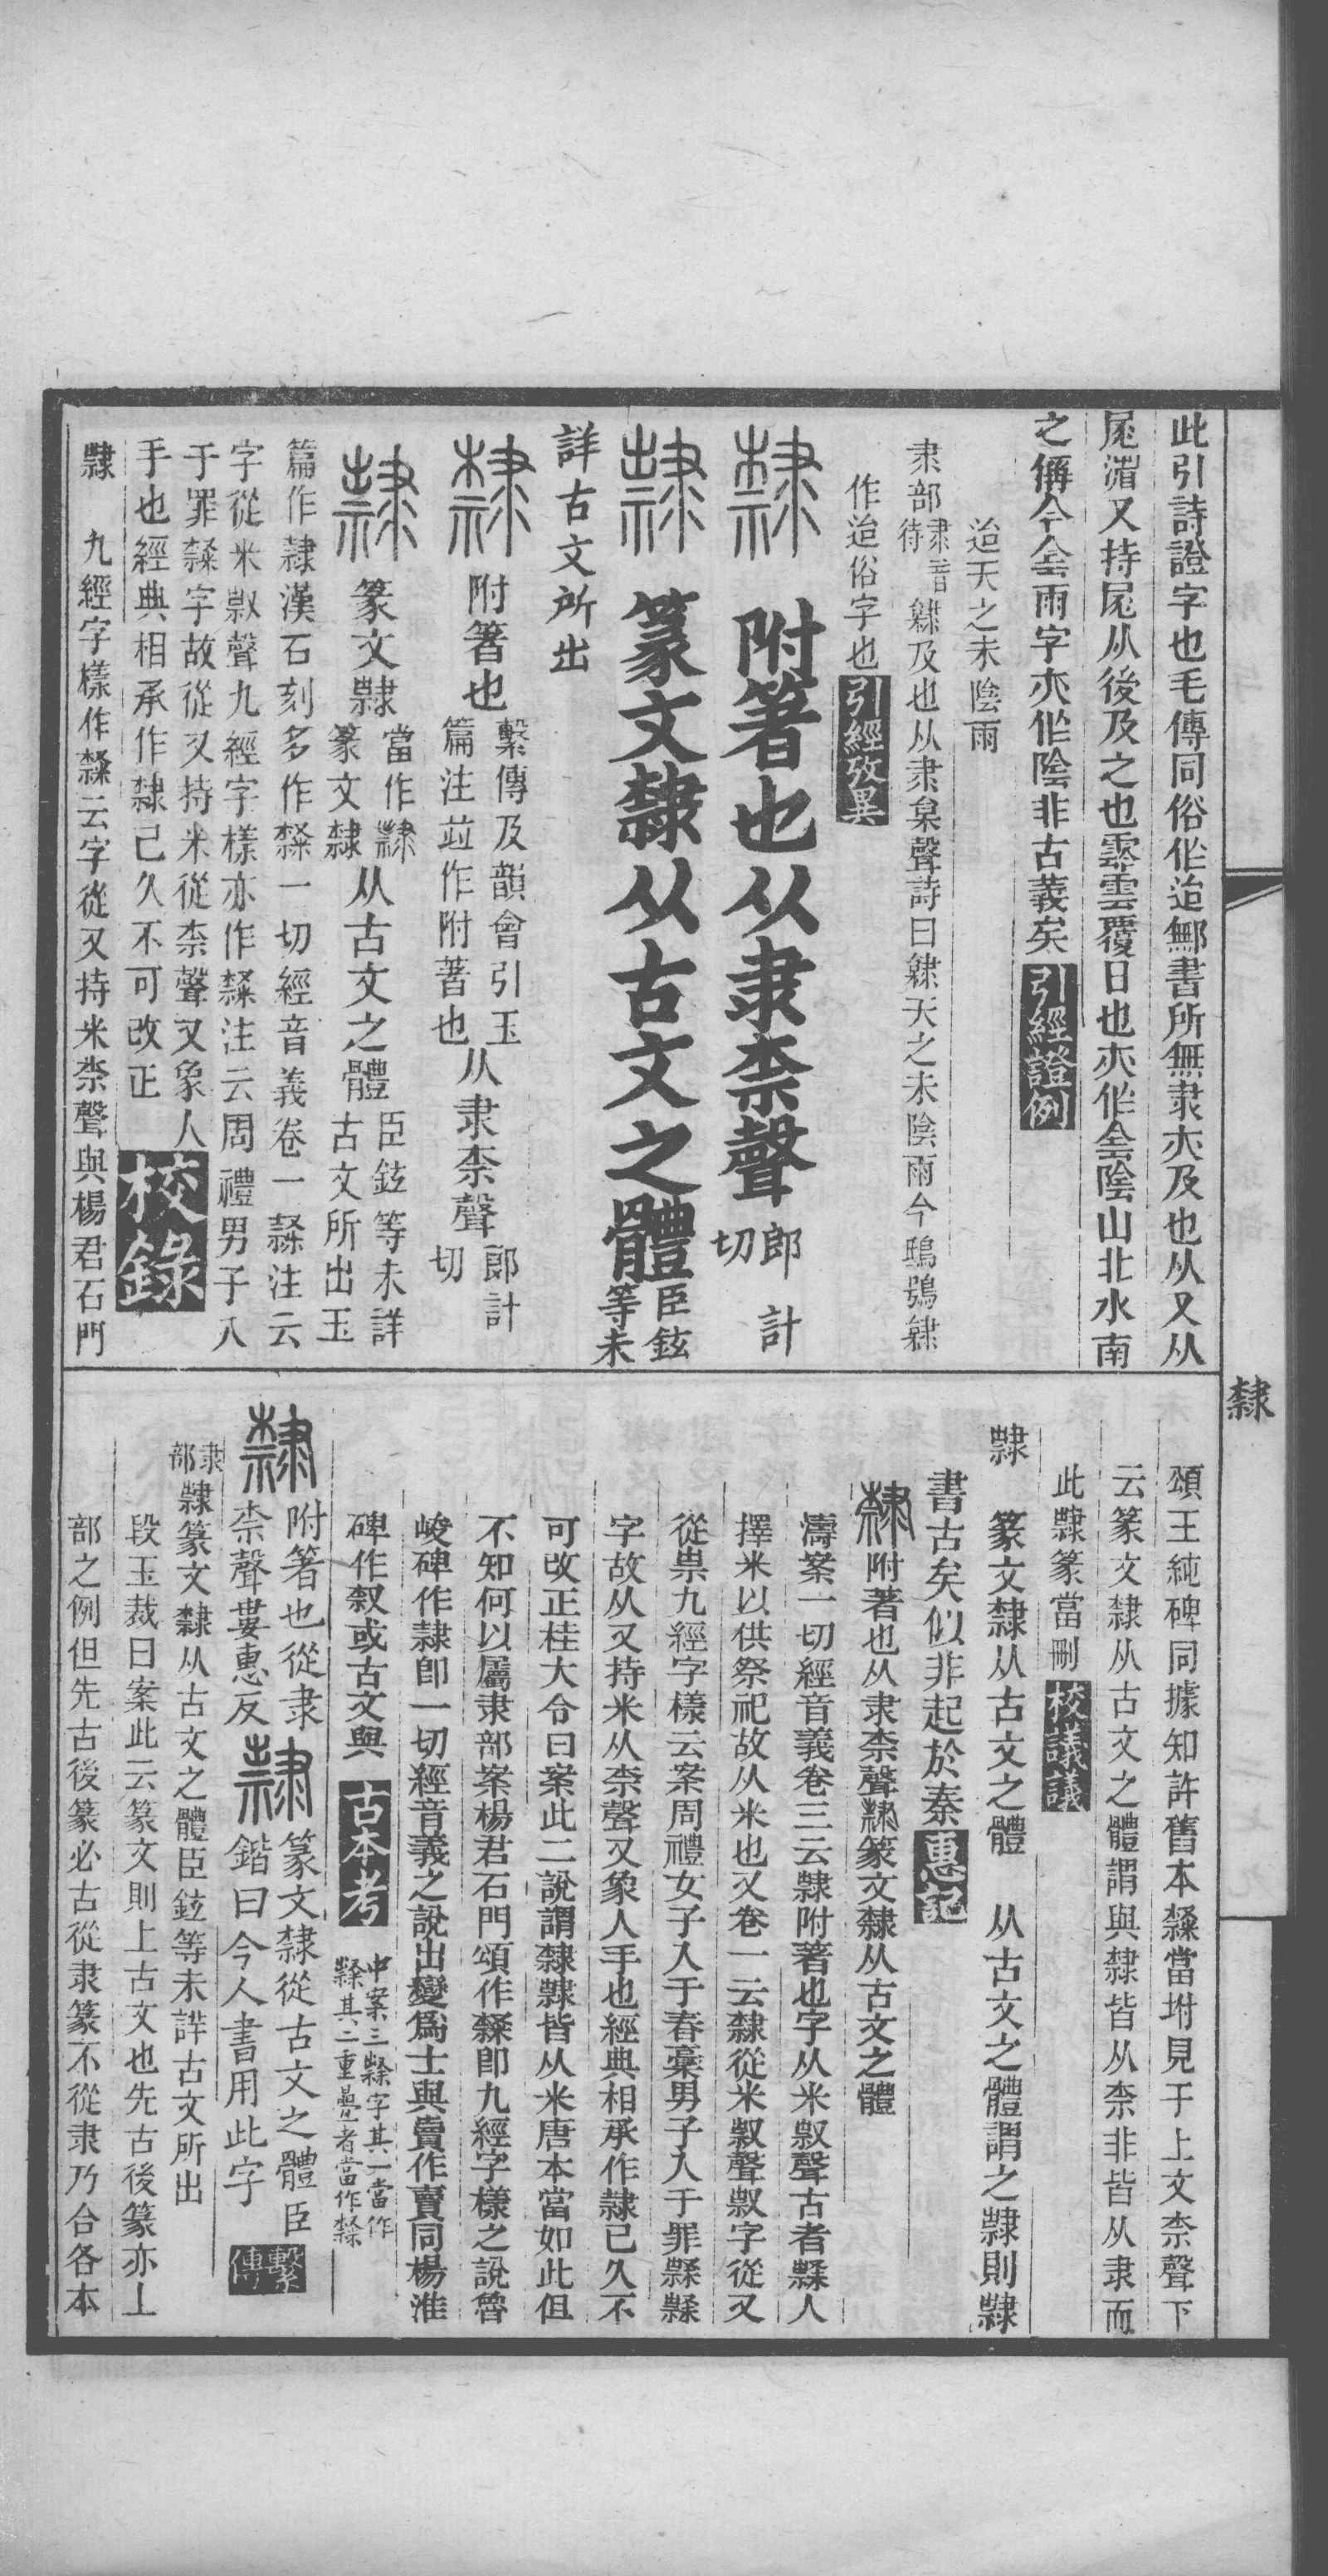 此引詩證字也毛傳同俗作迨鄦書所無隶亦及也从又从
尾渻又持尾从後及之也霒雲覆日也亦作侌陰山北水南
之偁今侌雨字亦作陰非古義矣引經證例
迨天之未陰雨
隶部隶音待䨅及也从隶枲聲詩曰䨅天之未陰雨今鴟鴞䨅
作迨俗字也引經攷異
隸附箸也从隶柰聲郎計切
𨽻篆文隸从古文之體臣鉉等未
詳古文所出
隸附箸也繫傳及韻會引玉篇注竝作附著也从隶柰聲郎計切
𨽻篆文隸當作𨽻篆文隸从古文之體臣鉉等未詳古文所出玉
篇作隷漢石刻多作𥽿一切經音義卷一𥽿注云
字從米㕢聲九經字樣亦作𥽿注云周禮男子入
于罪𥽿字故從又持米從柰聲又象人
手也經典相承作隷已久不可改正校錄
𨽻 九經字樣作𥽿云字從又持米柰聲與楊君石門
隸
頌王純碑同據知許舊本𥽿當坿見于上文柰聲下
云篆文隸从古文之體謂與隸皆从柰非皆从隶而
此𨽻篆當刪校議議
𨽻 篆文隸从古文之體 从古文之體謂之𨽻則𨽻
書古矣似非起於秦惠記
隸附著也从隶柰聲𨽻篆文隸从古文之體
濤案一切經音義卷三云隸附著也字从米㕢聲古者𥽿人
擇米以供祭祀故从米也又卷一云隸從米㕢聲㕢字從又
從祟九經字樣云案周禮女子入于舂稾男子入于罪𥽿𥽿
字故从又持米从柰聲又象人手也經典相承作隷已久不
可改正桂大令曰案此二說謂隸𨽻皆从米唐本當如此但
不知何以屬隶部案楊君石門頌作𥽿卽九經字樣之說魯
峻碑作隷卽一切經音義之說出變爲士與賣作賣同楊淮
碑作㕢或古文與古本考中案三𥽿字其一當作𥽿其二重疊者當作𥽿
隸附箸也從隶柰聲婁惠反𨽻篆文隸從古文之體臣鍇曰今人書用此字繫傳
隶部𨽻篆文隸从古文之體臣鉉等未詳古文所出
段玉裁曰案此云篆文則上古文也先古後篆亦丄
部之例但先古後篆必古從隶篆不從隶乃合各本